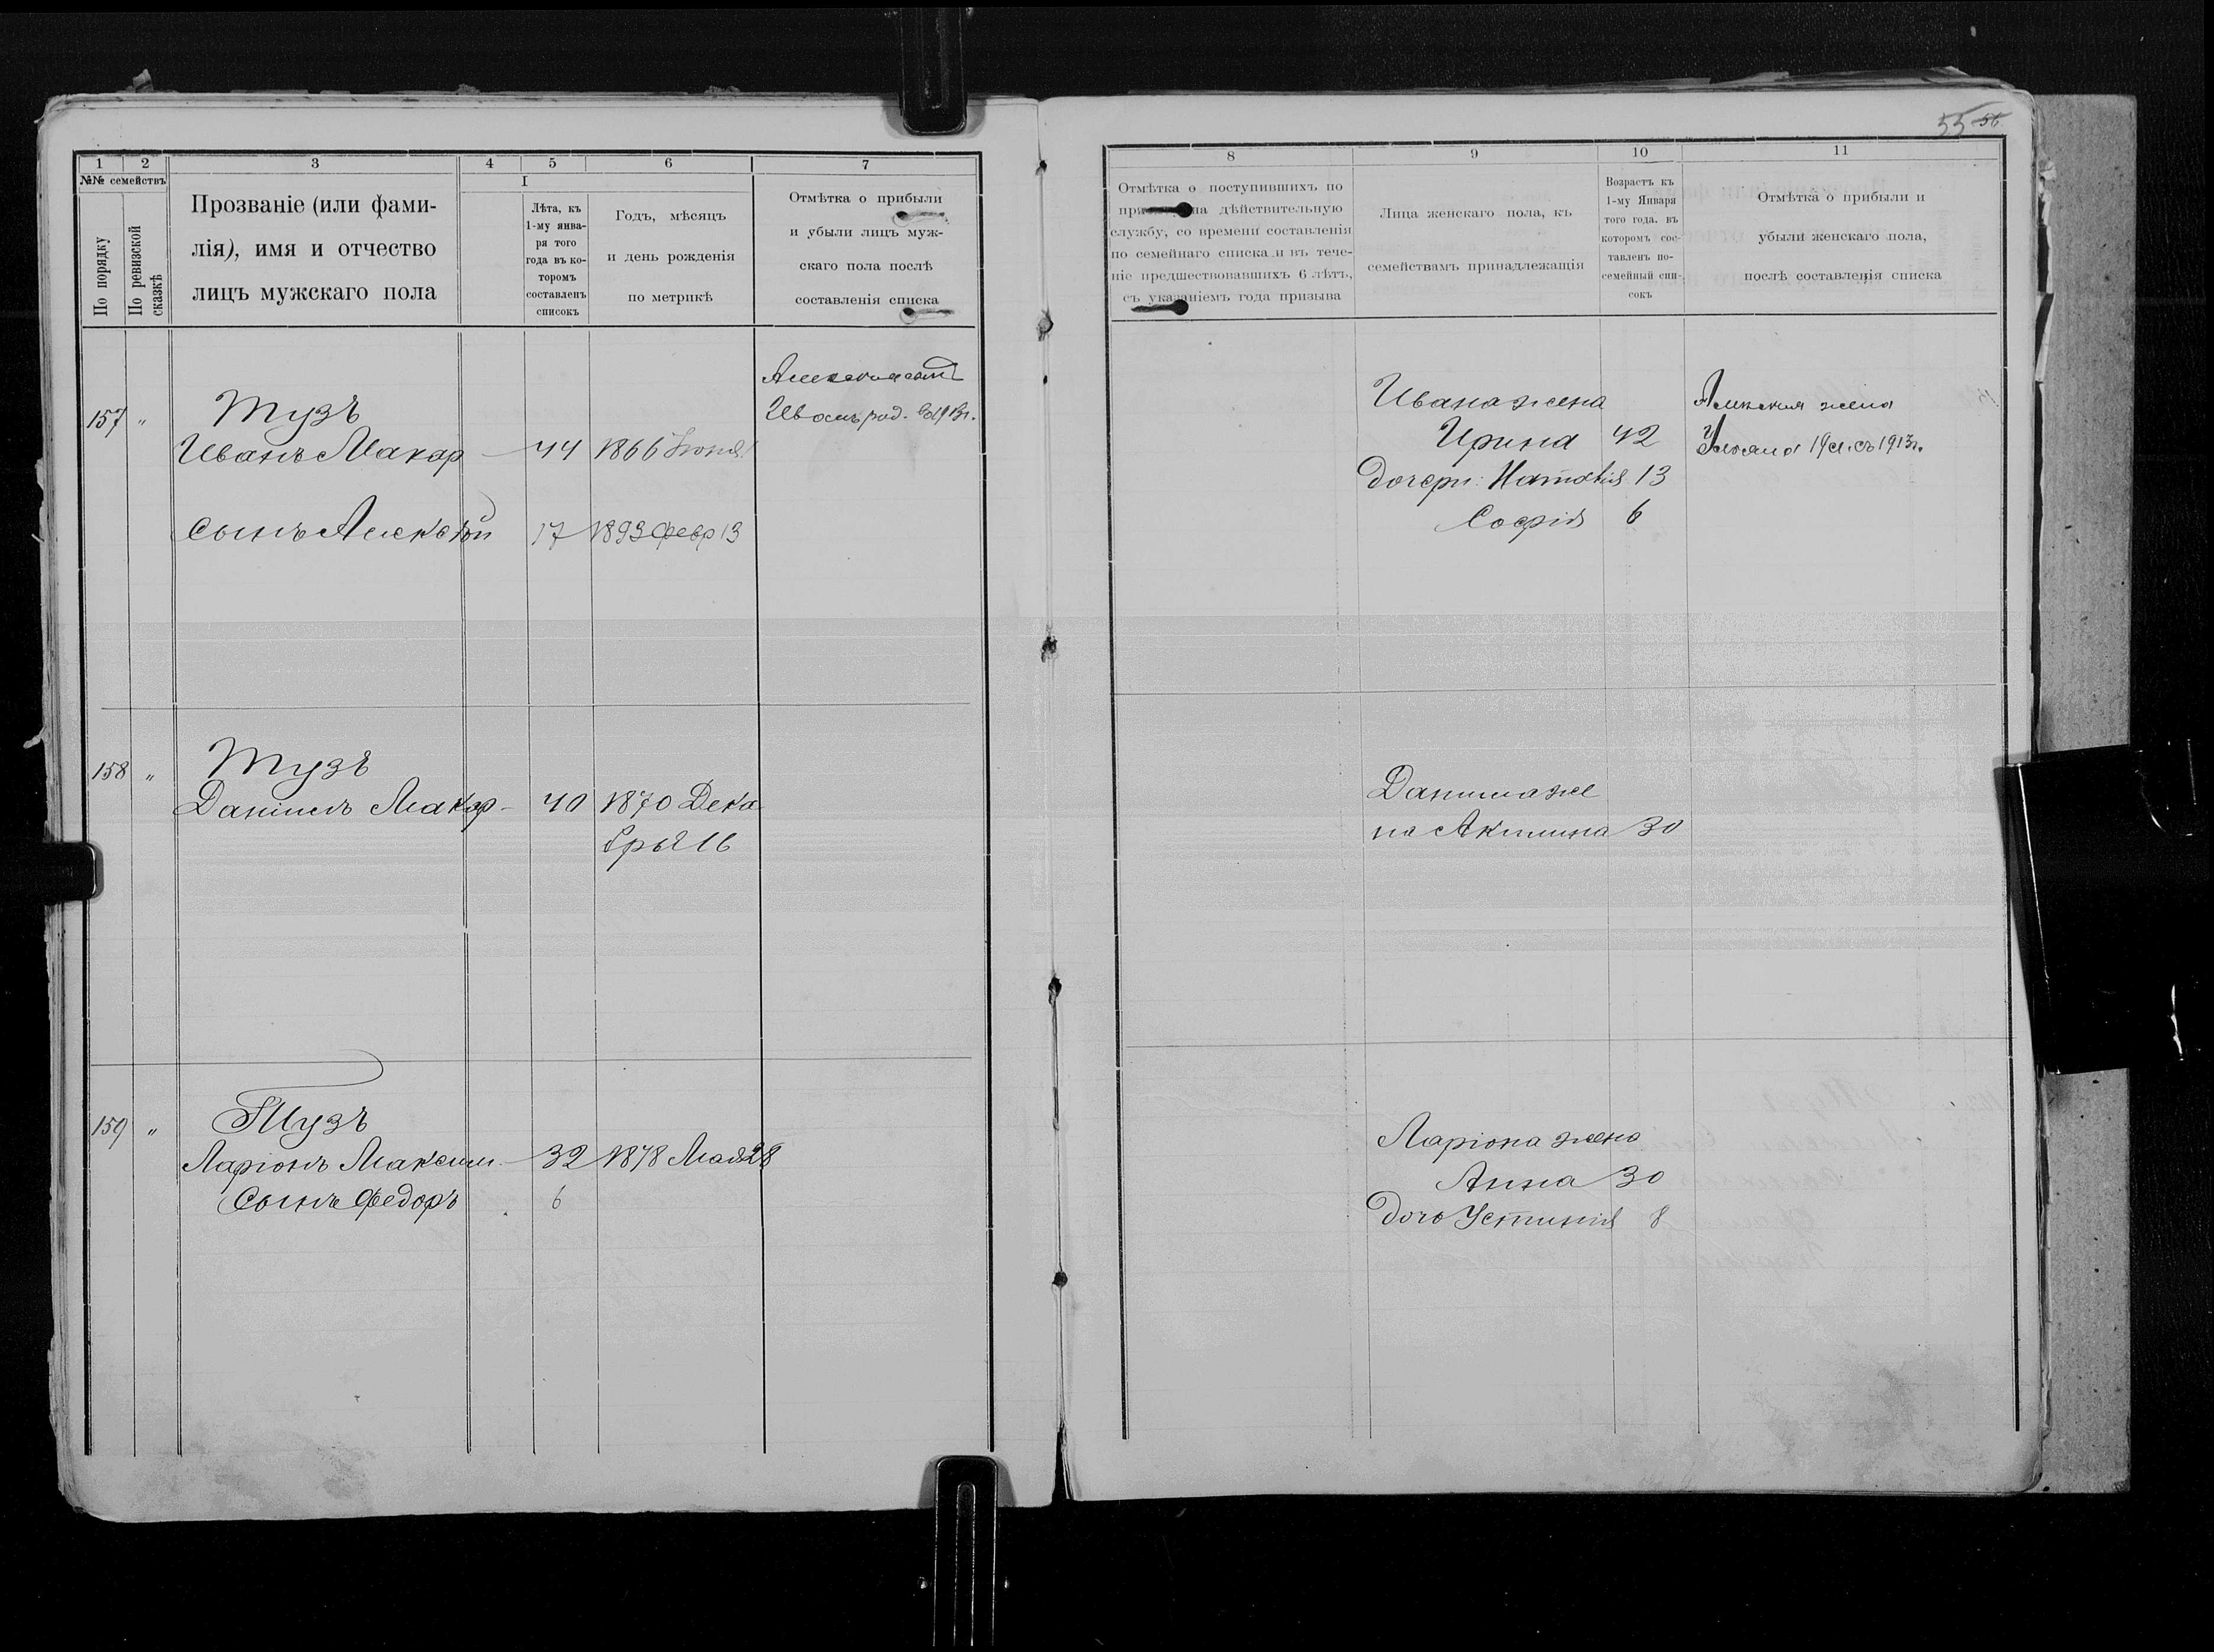 55 56
1 2 3 4 5 6 7
№№ семействъ
По порядку
По ревизской сказкѣ
Прозваніе (или фами-
лія), имя и отчество
лицъ мужскаго пола
I
Лѣта, къ
1-му янва-
ря того
года въ ко-
торомъ
составленъ
списокъ
Годъ, мѣсяцъ
и день рожденія
по метрикѣ
Отмѣтка о прибыли
и убыли лицъ муж-
скаго пола послѣ
составленія списка
8 9 10 11
Отмѣтка о поступившихъ по
на дѣйствительную
службу, со времени составленія
по семейнаго списка и въ тече-
ніе предшествовавшихъ 6 лѣтъ,
съ указаніемъ года призыва
Лица женскаго пола, къ
семействамъ принадлежащія
Возрастъ къ
1-му Января
того года, въ
которомъ сос-
тавленъ по-
семейный спи-
сокъ
Отмѣтка о прибыли и
убыли женскаго пола,
послѣ составленія списка
157 " Тузъ
Иванъ Макар 44 1866 Іюня
сынъ Алексѣй 17 1893 февр 13
Алексѣя сынъ
Иванъ род. въ 1913г.
Ивана жена
Ирина 42
дочери: Наталія 13
Софія 6
Алексѣя жена
Ульяна 19 л. съ 1913г.
158 " Тузъ
Даніилъ Макар 40 1870 Дека
бря 16
Даніила же
на Акилина 30
159 " Тузъ
Ларіонъ Максим. 32 1878 Мая 28
Сынъ Федоръ 6
Ларіона жена
Анна 30
дочь Устинія 8